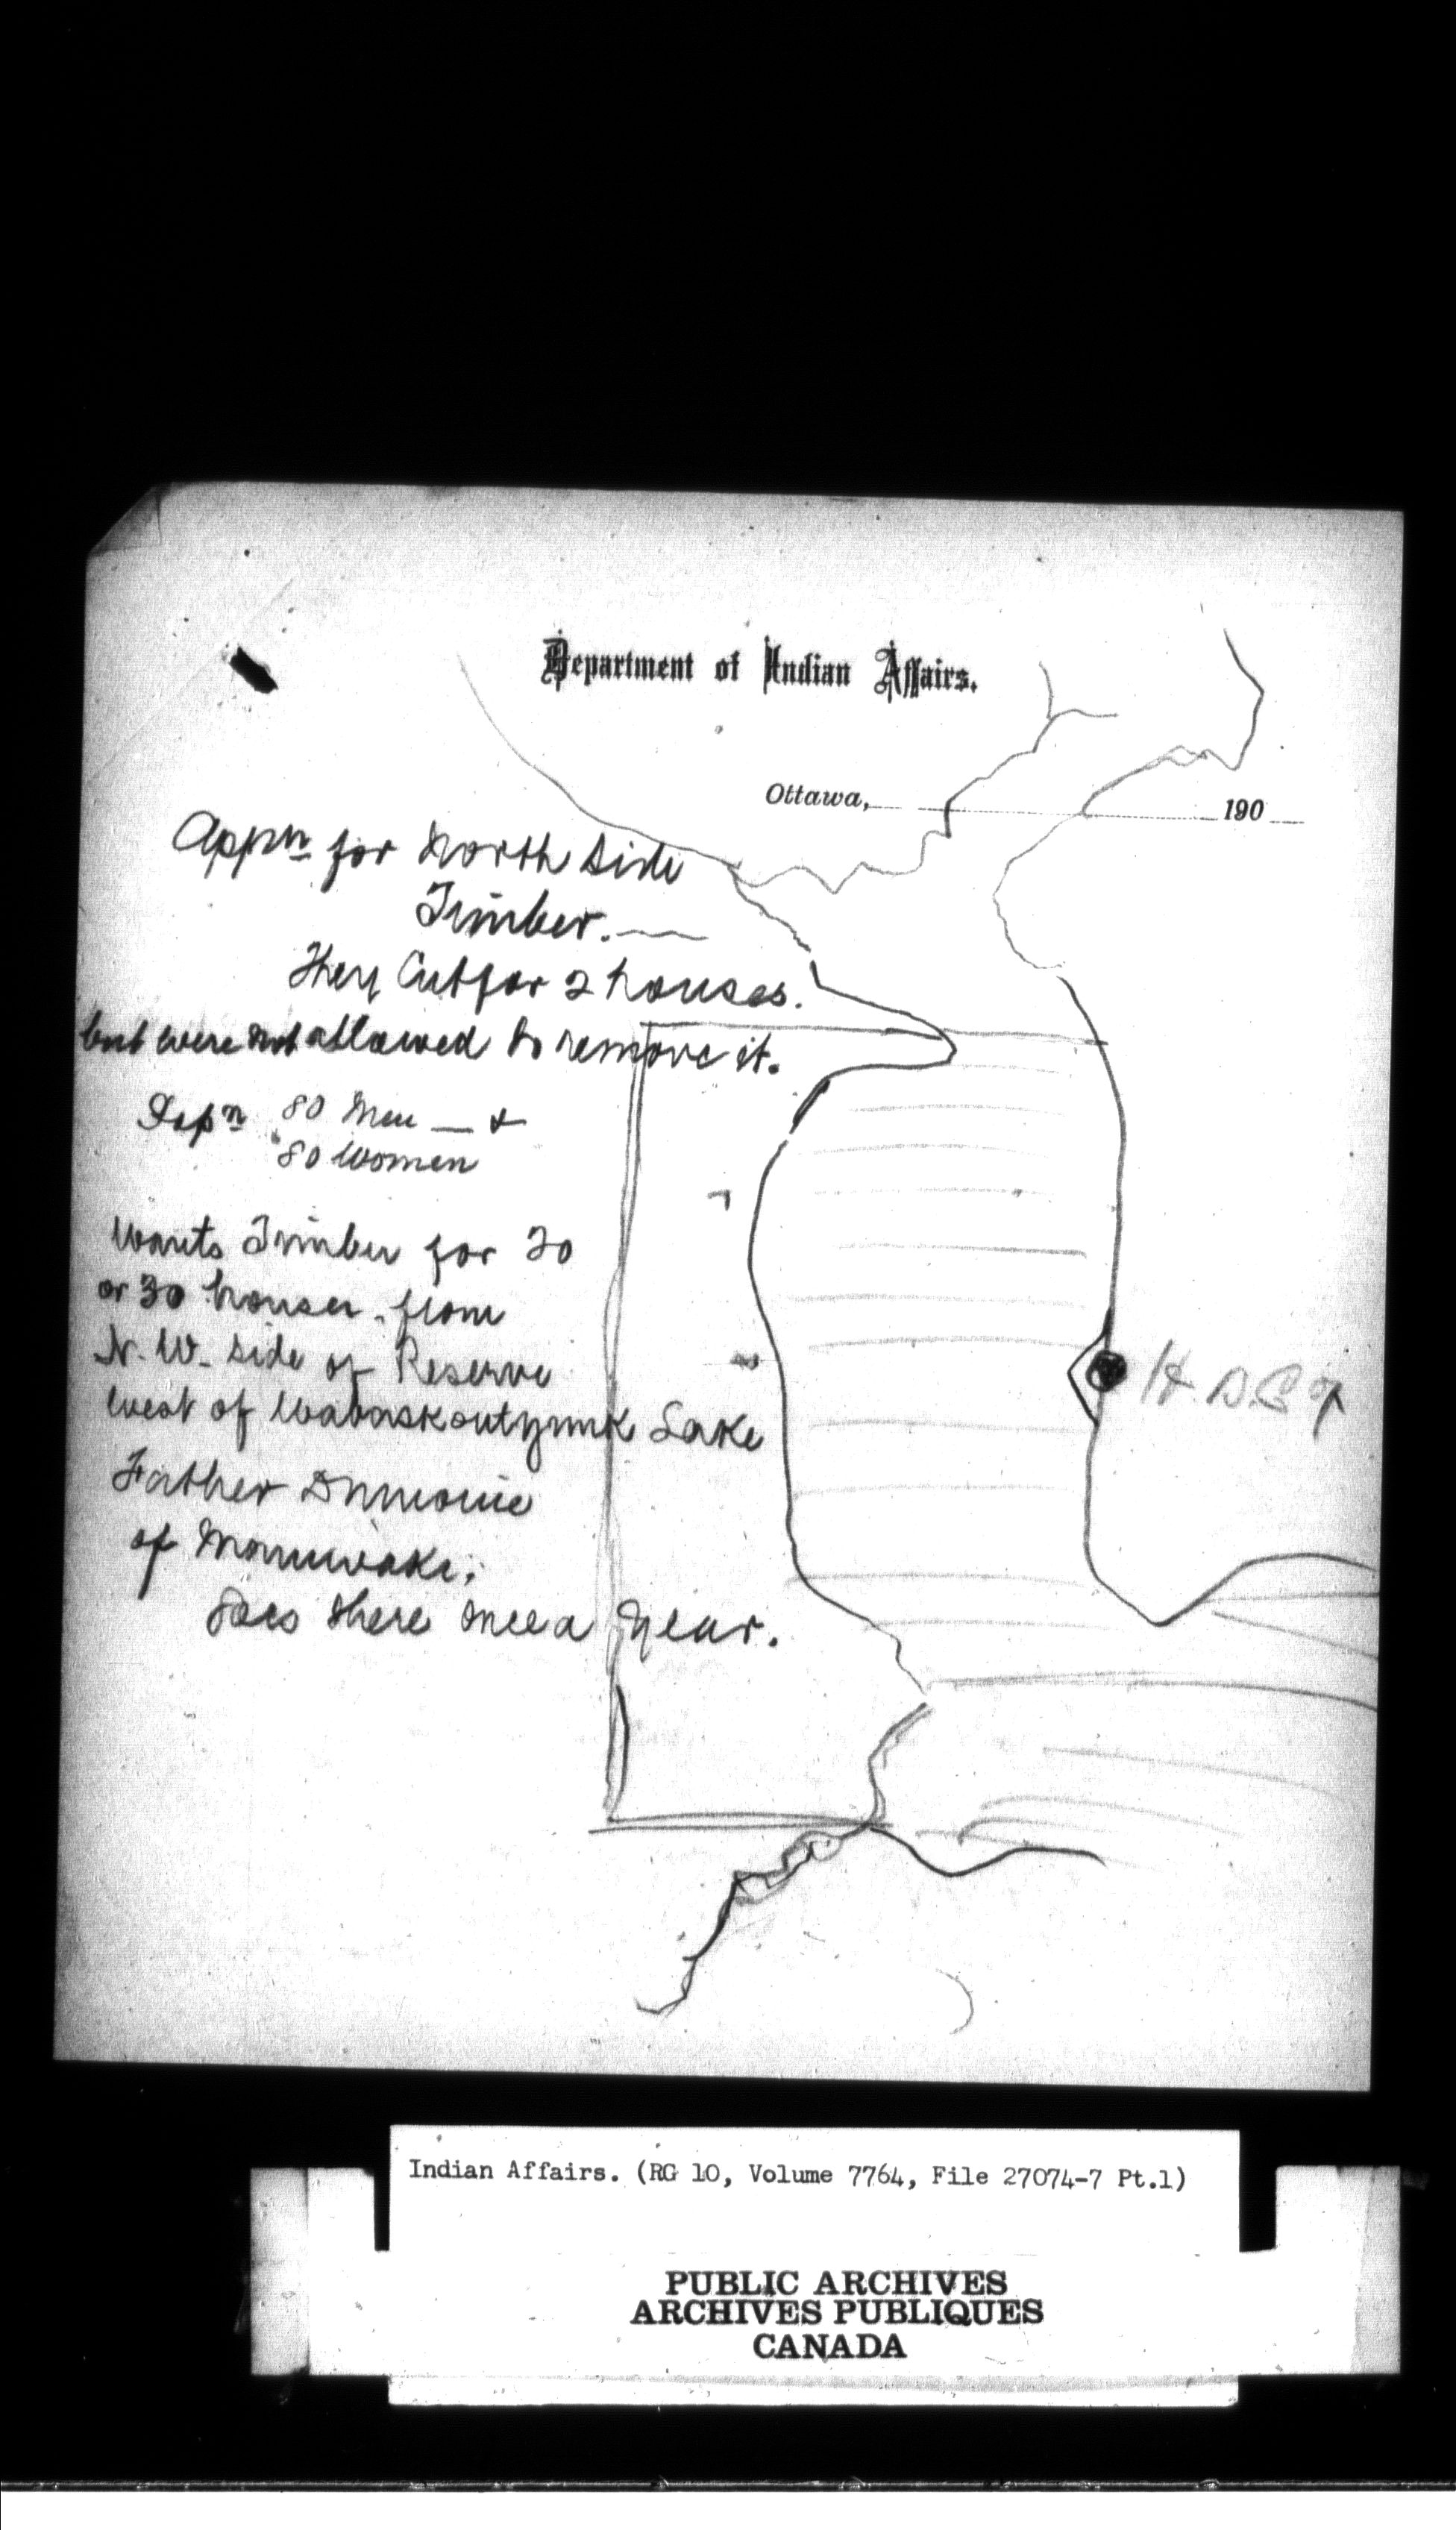 Department of Indian Affairs.
Ottawa, 190
Appn for North Side
Timber. —
They Cut for 2 houses.
but were not allowed to remove it.
80 Men — &
80 Women
Wants Timber for 20
or 30 houses. from
N. W. side of Reserve
West of Lake
Father
of Maniwaki.
Goes there once a year.
H. B. Co
Indian Affairs. (RG 10, Volume 7764, File 27074-7 Pt.1)
PUBLIC ARCHIVES
ARCHIVES PUBLIQUES
CANADA